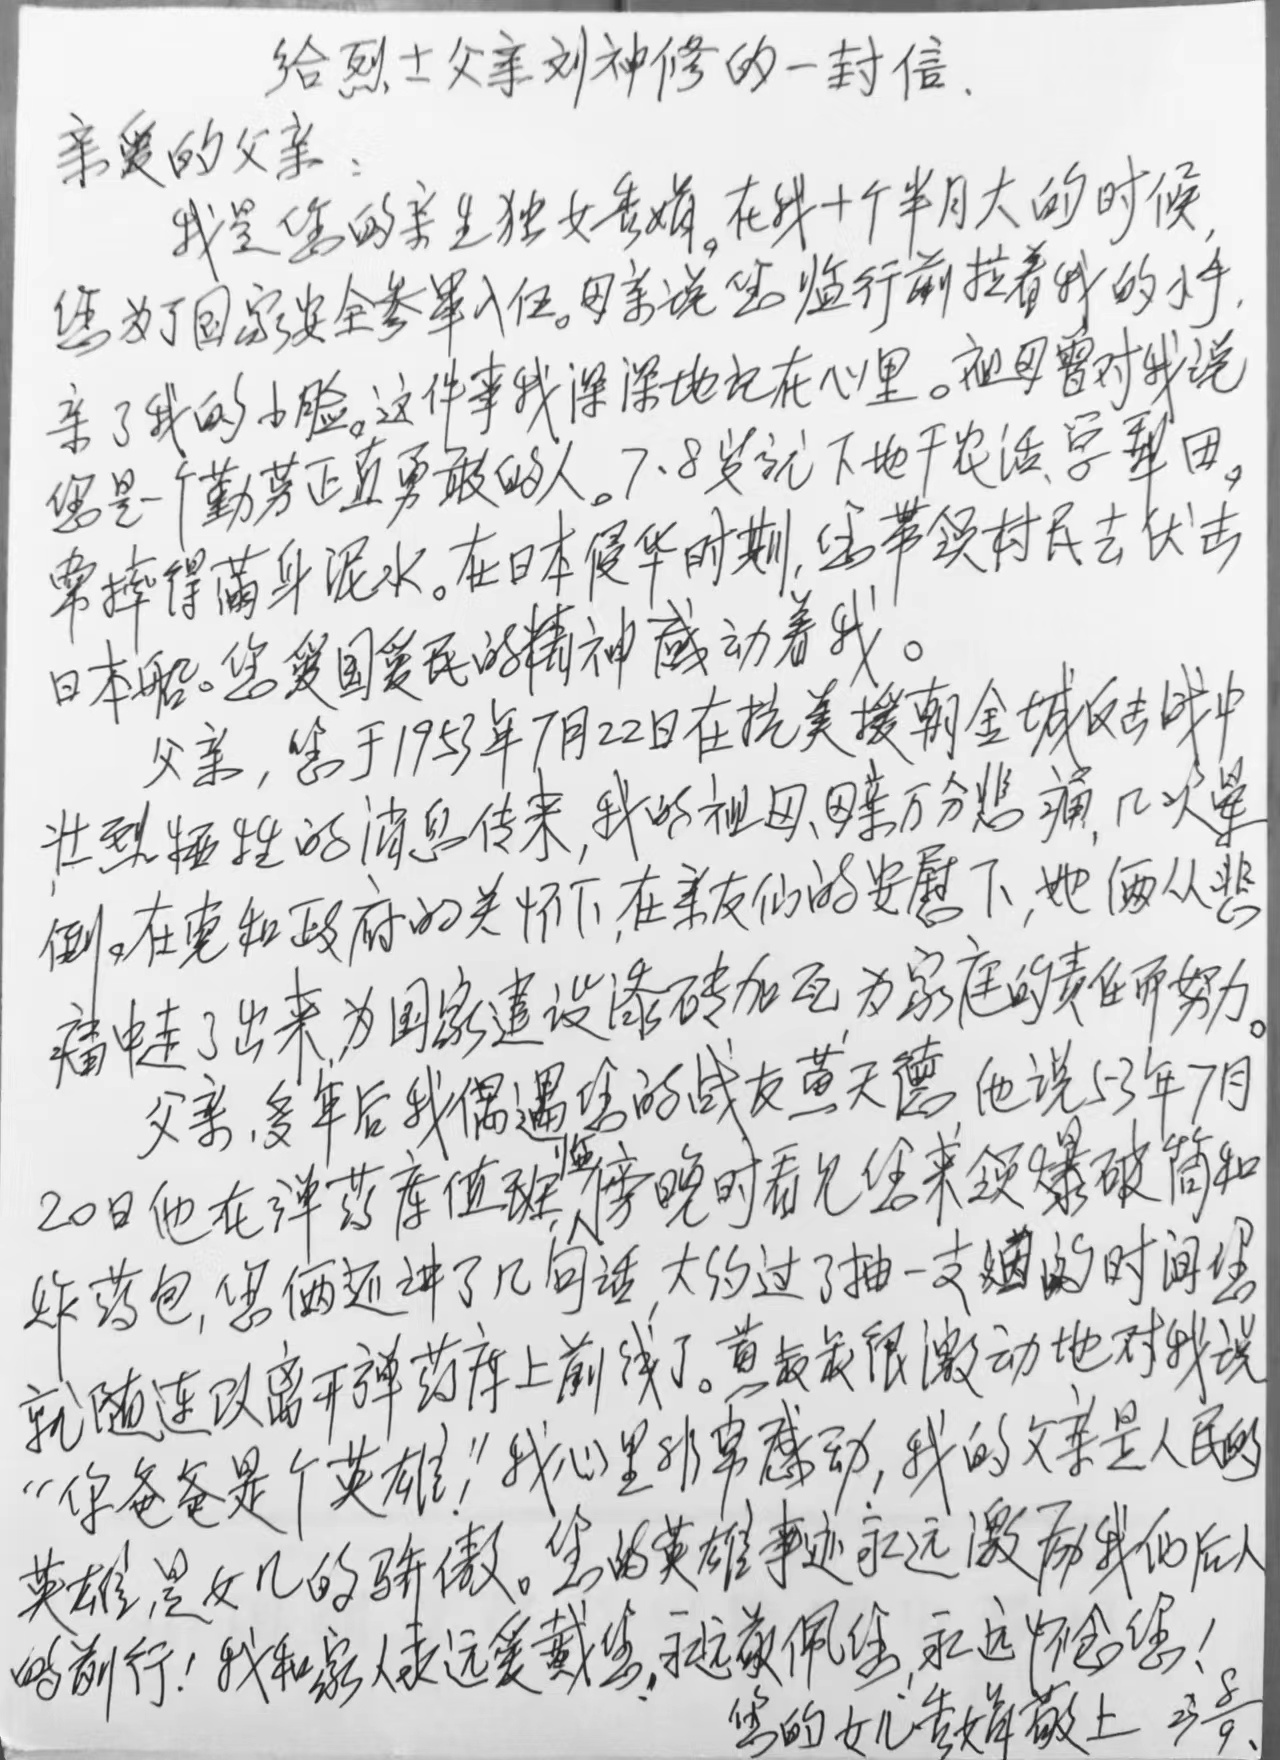 给烈士父亲刘神修的一封信.
亲爱的父亲:
我是您的亲生独女秀娟。在我十个半月大的时候,
您为了国家安全参军入伍。母亲说您临行前拉着我的小手,
亲了我的小脸。这件事我深深地记在心里。祖母曾对我说
您是一个勤劳正直勇敢的人。7、8岁就下地干农活、学犁田。
常摔得满身泥水。在日本侵华时期,您带领村民去伏击
日本船。您爱国爱民的精神感动着我。
父亲,您于1953年7月22日在抗美援朝金城反击战中
壮烈牺牲的消息传来,我的祖母、母亲万分悲痛,几次晕
倒。在党和政府的关怀下,在亲友们的安慰下,她俩从悲
痛中走了出来,为国家建设添砖加瓦,为家庭的责任而努力。
父亲,多年后我偶遇您的战友黄天德,他说53年7月
20日他在弹药库值班,临傍晚时看见您来领爆破筒和
炸药包,您俩还讲了几句话,大约过了抽一支烟的时间您
就随连队离开弹药库上前线了。黄叔叔很激动地对我说
“你爸爸是个英雄!”我心里非常感动,我的父亲是人民的
英雄,是女儿的骄傲。您的英雄事迹永远激励我们后人
的前行!我和家人永远爱戴您,永远敬佩您,永远怀念您!
您的女儿秀娟敬上